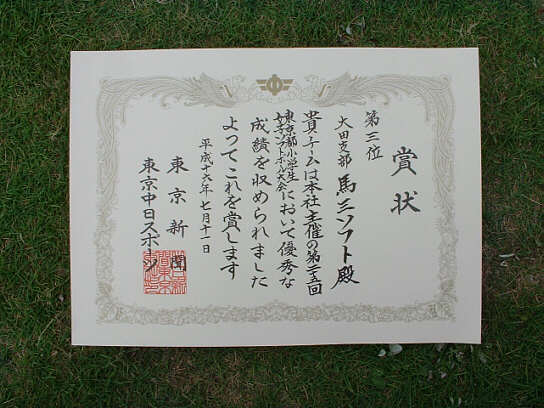 賞状
第三位
大田支部 馬三ソフト殿
貴チームは本社主催の第二五回
東京都小学生
女子ソフトボール大会において優秀な
成績を収められました
よってこれを賞します
平成十六年七月十一日
東京新聞
東京中日スポーツ